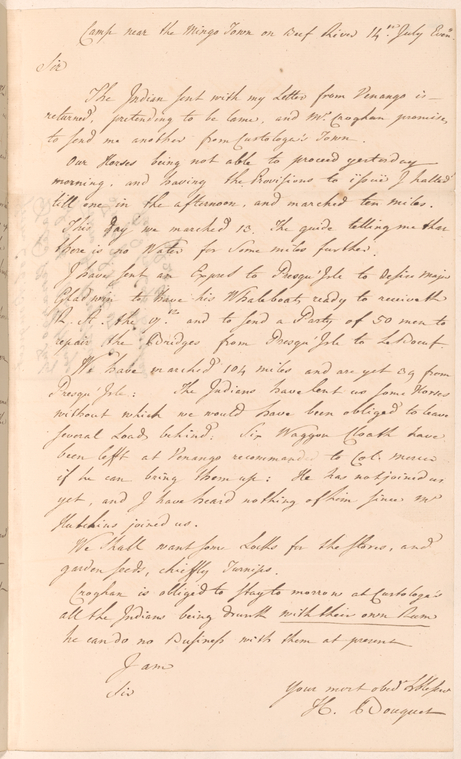 Camp near the Mingo Town on Beef River 14th July Eveng
Sir
The Indian sent with my Letter from Venango is
returned, pretending to be lame, and Mr. Croghan promises
to send me another from Custologa's Town.
Our Horses being not able to proceed yesterday
morning, and having the Provisions to issue I halted
till one in the afternoon, and marched ten miles.
This day we marched 13. The guide telling me that
there is no Water for Some miles further.
I have sent an Express to Presqu'Isle to desire major
Gladwin to have his Whaleboats ready to receive the
R. A. the 17th and to send a Party of 50 men to
repair the Bridges from Presqu'Isle to LeBoeuf.
We have marched 104 miles and are yet 39 from
Presqu'Isle: The Indians have lent us some Horses
without which we would have been obliged to leave
several Loads behind. Six Waggon Cloath have
been lefft at Venango recommanded to Col: mercer
if he can bring them up: He has not joined us
yet, and I have heard nothing of him since Mr
Hutchins joined us.
We Shall want some Locks for the stores, and
garden seeds, chieffly Turnips.
Croghan is obliged to Stay to morrow at Custologa's
all the Indians being drunk with their own Rum
he can do no Business with them at present
I am
Sir
Your most obedt
H. Bouquet